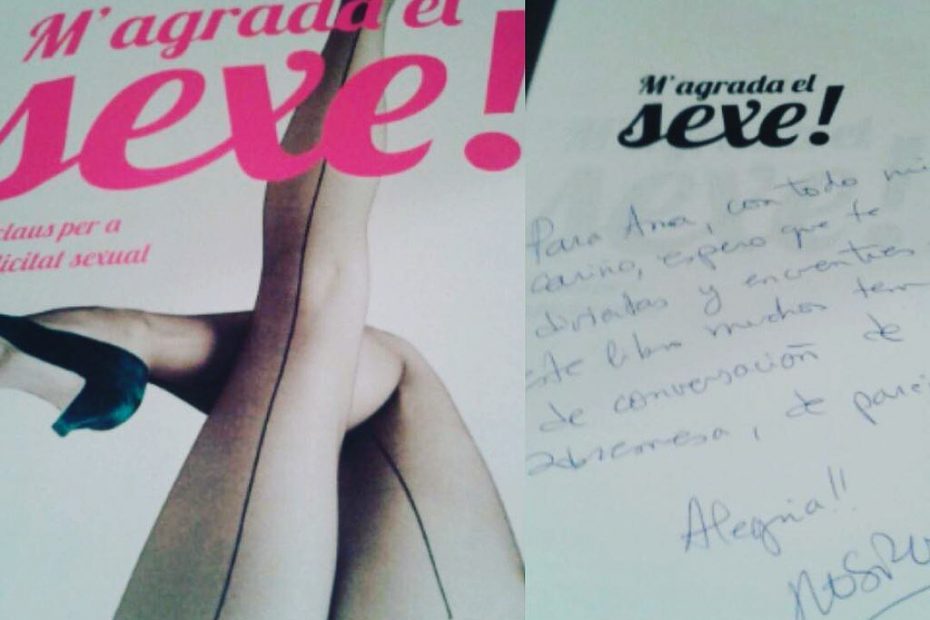 M'agrada el
sexe!
claus per a
licitat sexual
M'agrada el
sexe!
Para Anna, con todo mi
cariño, espero que te
diviertas y encuentres
este libro muchos tem
de conversación de
sobremesa, de pare
Alegria!!